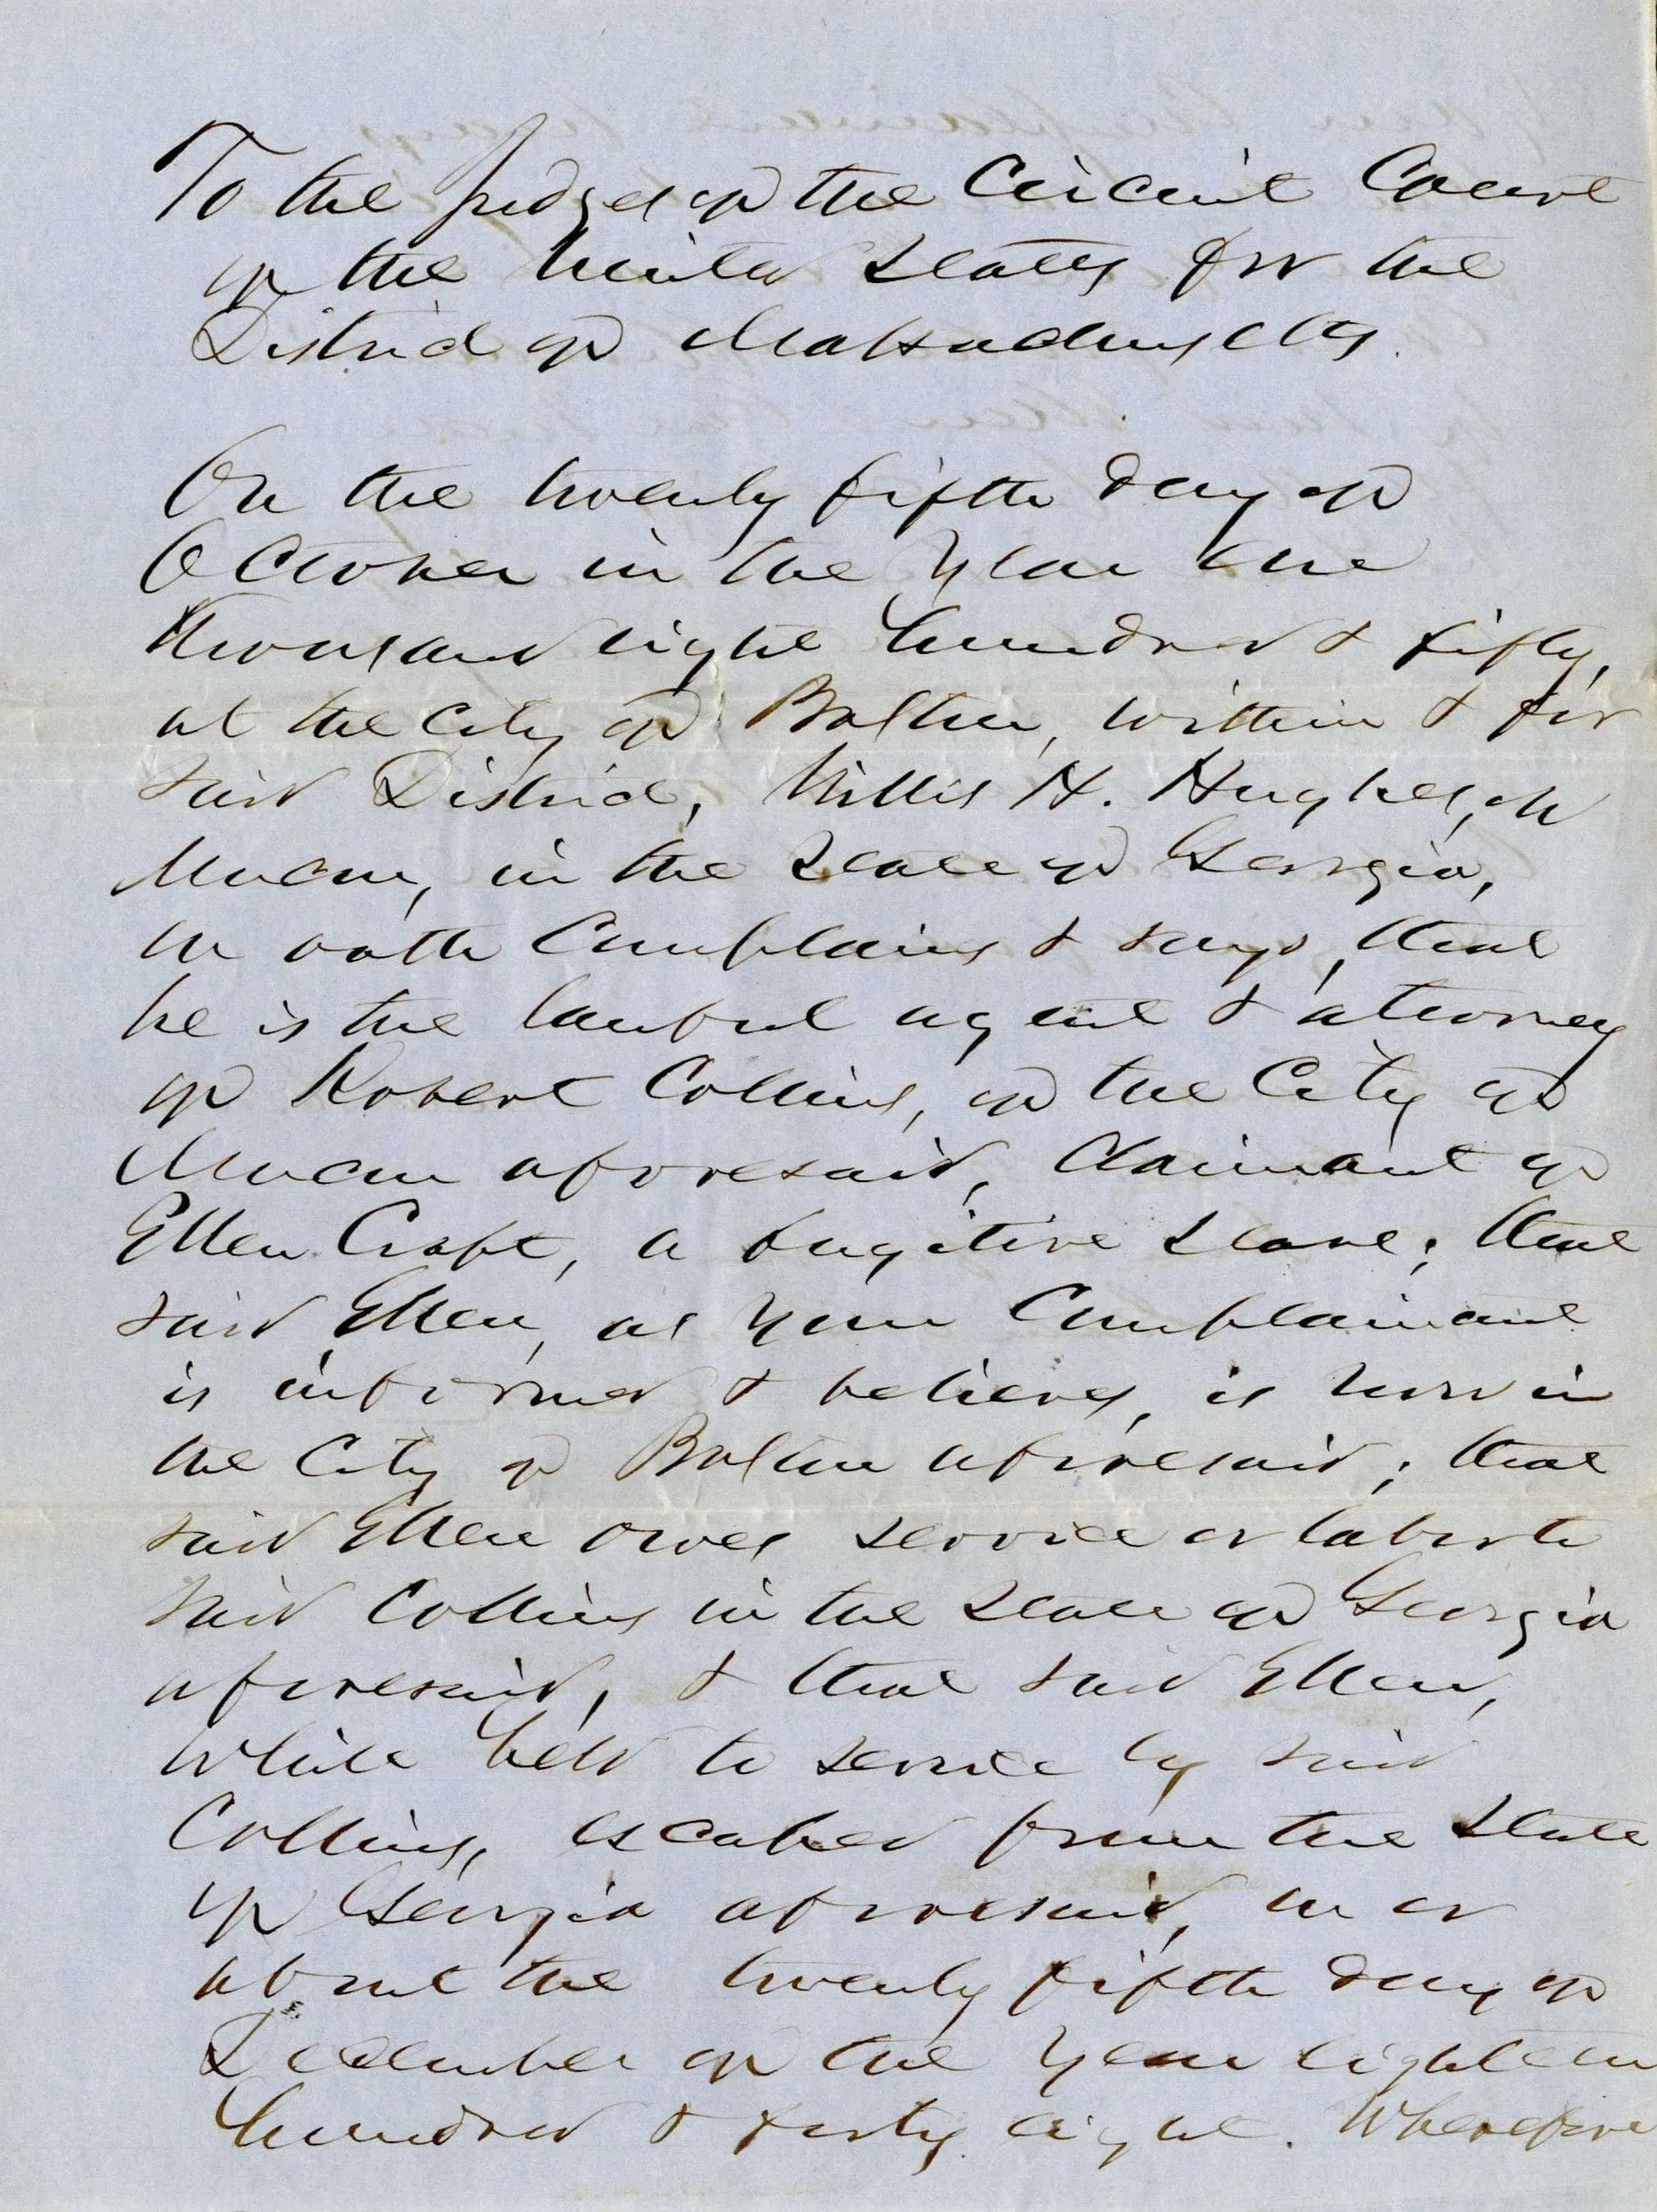 To the Judges of the Circuit Court
of the United States for the
District of Massachusetts.
On the twenty fifth day of
October in the year one
thousand eight hundred & fifty,
at the City of Boston, within & for
said District, Willis H. Hughes, of
Macon, in the State of Georgia,
on oath complains & says, that
he is the lawful agent & attorney
of Robert Collins, of the City of
Macon aforesaid, Claimant of
Ellen Craft, a fugitive slave; that
said Ellen, as your Complainant
is informed & believes, is now in
the City of Boston aforesaid; that
said Ellen owes service or labor to
said Collins in the State of Georgia
aforesaid, & that said Ellen,
while held to service by said
Collins, escaped from the State
of Georgia aforesaid, on or
about the twenty fifth day of
December of the year eighteen
hundred & forty eight. Wherefore